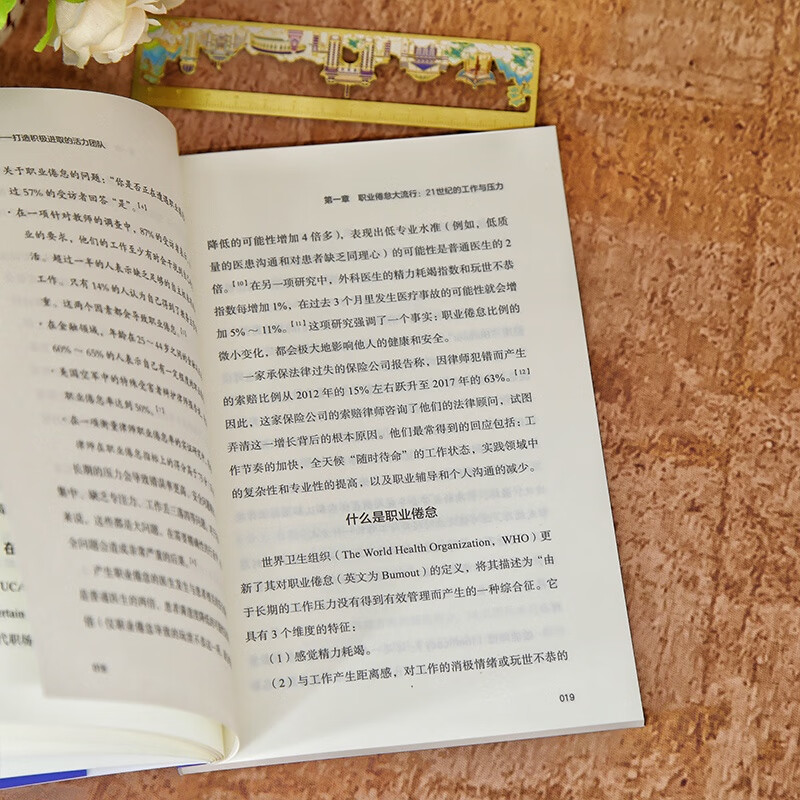 ——打造积极进取的活力团队
关于职业倦怠的问题：“你是否正在遭遇职业
过 57% 的受访者回答“是”。
·在一项针对教师的调查中，87% 的受访者表
业的要求，他们的工作至少有时会干扰
活。超过一年的人表示缺乏足够的自主
工作。只有 14% 的人认为自己得到了
重。这两个因素都会导致职业倦怠。
·在金融领域，年龄在 25～44 岁之间的
60%～65% 的人表示自己有一定程度
·美国空军中的特殊受害者辩护律师
业倦怠率达到 50%。
·在一项衡量律师职业倦怠率的
律师在职业倦怠指标上的得分高于
长期的压力会导致错误率更高、安全
集中、缺乏专注力、工作丢三落四等问题。
来说，这些都是大问题。在需要精确性
全问题会造成非常严重的后果。
产生职业倦怠的医生发生与患者
是普通医生的两倍，患者满意度降低
倍（仅职业倦怠导致的
018
在
UCA
ertain
代职场
第一章 职业倦怠大流行：21世纪的工作与压力
降低的可能性增加 4 倍多），表现出低专业水准（例如，低质
量的医患沟通和对患者缺乏同理心）的可能性是普通医生的 2
倍。[10] 在另一项研究中，外科医生的精力耗竭指数和玩世不恭
指数每增加 1%，在过去 3 个月里发生医疗事故的可能性就会增
加 5%～11%。[11] 这项研究强调了一个事实：职业倦怠比例的
微小变化，都会极大地影响他人的健康和安全。
一家承保法律过失的保险公司报告称，因律师犯错而产生
的索赔比例从 2012 年的 15% 左右跃升至 2017 年的 63%。[12]
因此，这家保险公司的索赔律师咨询了他们的法律顾问，试图
弄清这一增长背后的根本原因。他们最常得到的回应包括：工
作节奏的加快，全天候“随时待命”的工作状态，实践领域中
的复杂性和专业性的提高，以及职业辅导和个人沟通的减少。
什么是职业倦怠
世界卫生组织（The World Health Organization，WHO）更
新了其对职业倦怠（英文为 Burnout）的定义，将其描述为“由
于长期的工作压力没有得到有效管理而产生的一种综合征。它
具有 3 个维度的特征：
（1）感觉精力耗竭。
（2）与工作产生距离感，对工作的消极情绪或玩世不恭的
019